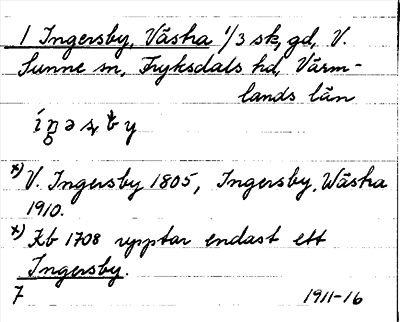 1 Ingersby, Västra 1/3 sk, gd, V.
Sunne sn, Fryksdals hd, Värm-
lands län
x) V. Ingersby 1805, Ingersby, Wästra
1910.
x) Kb 1708 upptar endast ett
Ingersby.
7 1911-16